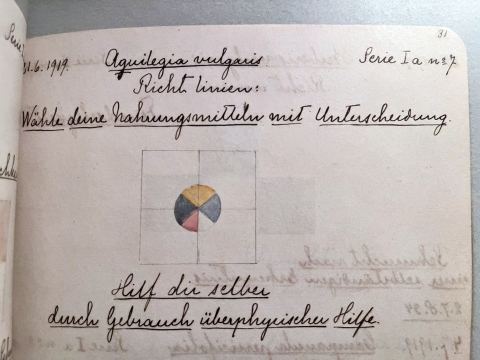 31
31.6.1919. Aquilegia vulgaris Serie I a nº 7
Richtlinien:
Wähle deine Nahrungsmitteln mit Unterscheidung.
Hilf dir selber
durch Gebrauch überphysischer Hilfe.